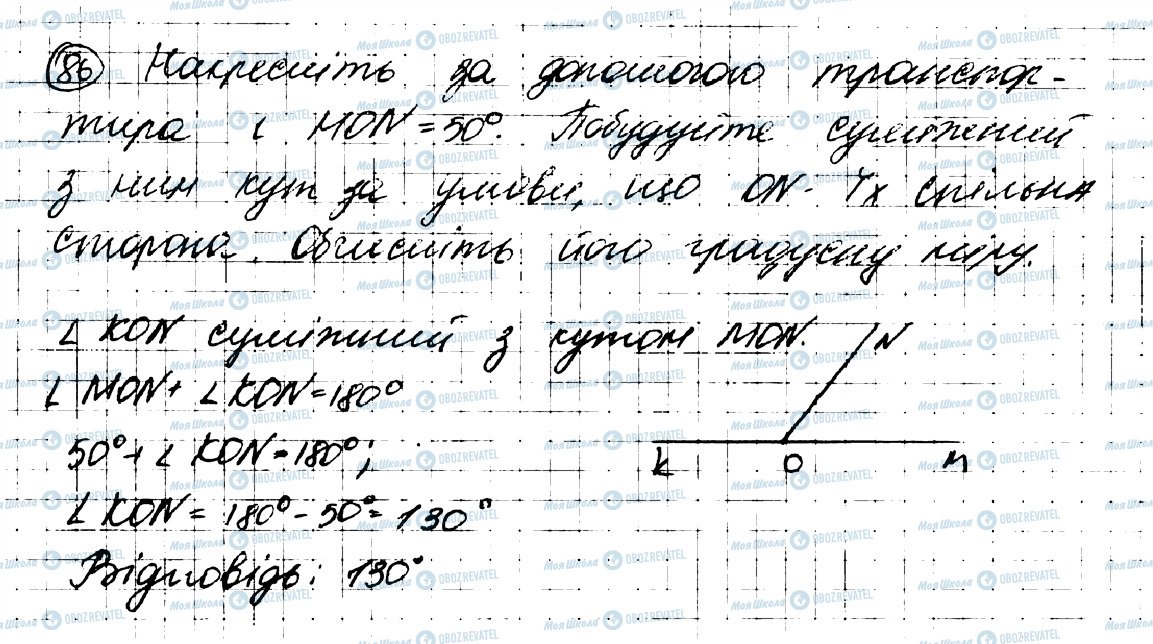 86 Накресліть за допомогою транспор-
тира ∠ MON = 50°. Побудуйте суміжний
з ним кут за умови, що ON - їх спільна
сторона. Обчисліть його градусну міру.
∠ KON суміжний з кутом MON.
∠ MON + ∠ KON = 180°
50° + ∠ KON = 180°;
∠ KON = 180° - 50° = 130°
Відповідь: 130°
N
K O M
МояШкола OBOZREVATEL